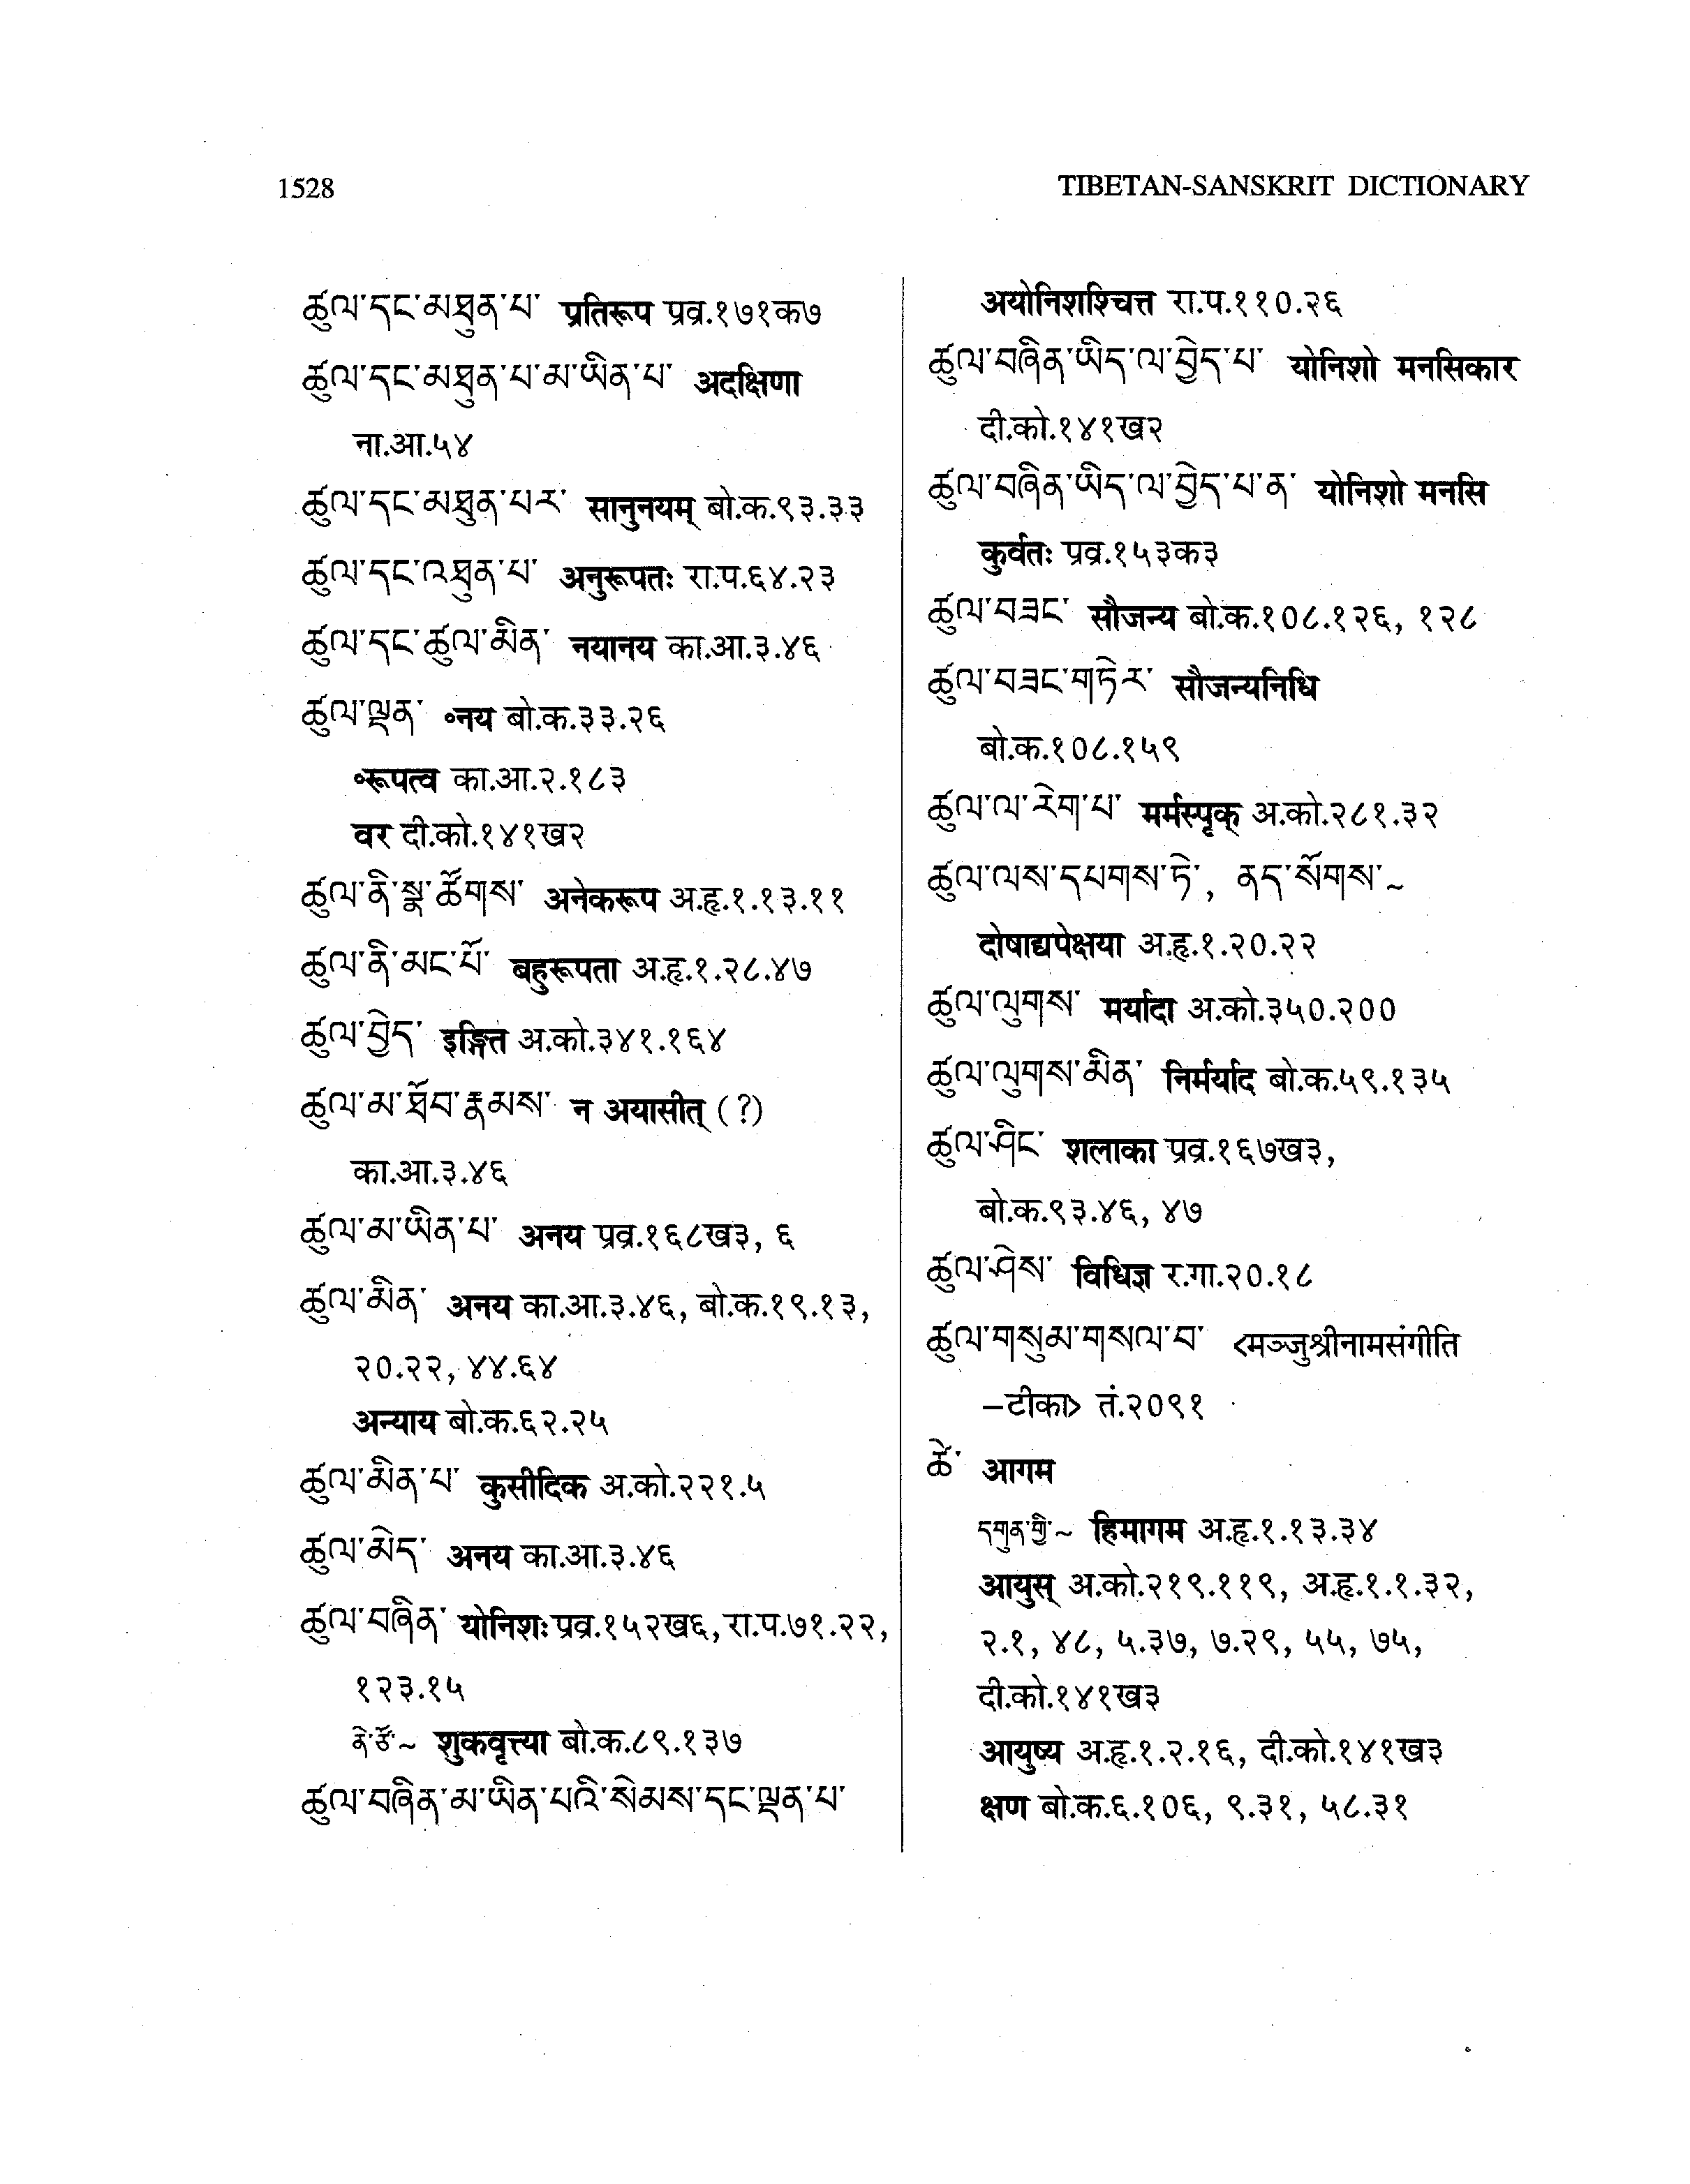 1528
TIBETAN-SANSKRIT DICTIONARY
ཚུལ་དང་མཐུན་པ་ प्रतिरूप प्रव्र.१७१क७
ཚུལ་དང་མཐུན་པ་མ་ཡིན་པ་ अदक्षिणा
ना.आ.५४
ཚུལ་དང་མཐུན་པར་ सानुनयम् बो.क.९३.३३
ཚུལ་དང་འཐུན་པ་ अनुरूपतः रा.प.६४.२३
ཚུལ་དང་ཚུལ་མིན་ नयानय का.आ.३.४६
ཚུལ་ལྡན་ ॰नय बो.क.३३.२६
॰रूपत्व का.आ.२.१८३
वर दी.को.१४१ख२
ཚུལ་ནི་སྣ་ཚོགས་ अनेकरूप अ.हृ.१.१३.११
ཚུལ་ནི་མང་པོ་ बहुरूपता अ.हृ.१.२८.४७
ཚུལ་བྱེད་ इङ्गित अ.को.३४१.१६४
ཚུལ་མ་ཐོབ་རྣམས་ न अयासीत् (?)
का.आ.३.४६
ཚུལ་མ་ཡིན་པ་ अनय प्रव्र.१६८ख३, ६
ཚུལ་མིན་ अनय का.आ.३.४६, बो.क.१९.१३,
२०.२२, ४४.६४
अन्याय बो.क.६२.२५
ཚུལ་མིན་པ་ कुसीदिक अ.को.२२१.५
ཚུལ་མེད་ अनय का.आ.३.४६
ཚུལ་བཞིན་ योनिशः प्रव्र.१५२ख६, रा.प.७१.२२,
१२३.१५
ནེ་ཙོ་~ शुकवृत्त्या बो.क.८९.१३७
ཚུལ་བཞིན་མ་ཡིན་པའི་སེམས་དང་ལྡན་པ་
अयोनिशश्चित्त रा.प.११०.२६
ཚུལ་བཞིན་ཡིད་ལ་བྱེད་པ་ योनिशो मनसिकार
दी.को.१४१ख२
ཚུལ་བཞིན་ཡིད་ལ་བྱེད་པ་ན་ योनिशो मनसि
कुर्वतः प्रव्र.१५३क३
ཚུལ་བཟང་ सौजन्य बो.क.१०८.१२६, १२८
ཚུལ་བཟང་གཏེར་ सौजन्यनिधि
बो.क.१०८.१५९
ཚུལ་ལ་རེག་པ་ मर्मस्पृक् अ.को.२८१.३२
ཚུལ་ལས་དཔགས་ཏེ་, ནད་སོགས་~
दोषाद्यपेक्षया अ.हृ.१.२०.२२
ཚུལ་ལུགས་ मर्यादा अ.को.३५०.२००
ཚུལ་ལུགས་མིན་ निर्मर्याद बो.क.५९.१३५
ཚུལ་ཤིང་ शलाका प्रव्र.१६७ख३,
बो.क.९३.४६, ४७
ཚུལ་ཤེས་ विधिज्ञ र.गा.२०.१८
ཚུལ་གསུམ་གསལ་བ་ <मञ्जुश्रीनामसंगीति
–टीका> तं.२०९१
ཚེ་ आगम
དགུན་གྱི་~ हिमागम अ.हृ.१.१३.३४
आयुस् अ.को.२१९.११९, अ.हृ.१.१.३२,
२.१, ४८, ५.३७, ७.२९, ५५, ७५,
दी.को.१४१ख३
आयुष्य अ.हृ.१.२.१६, दी.को.१४१ख३
क्षण बो.क.६.१०६, ९.३१, ५८.३१